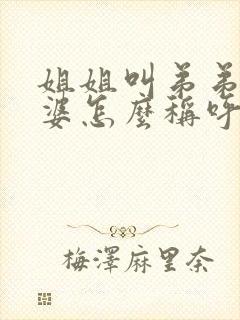 姐姐叫弟弟
婆怎麼稱呼
梅澤麻里奈